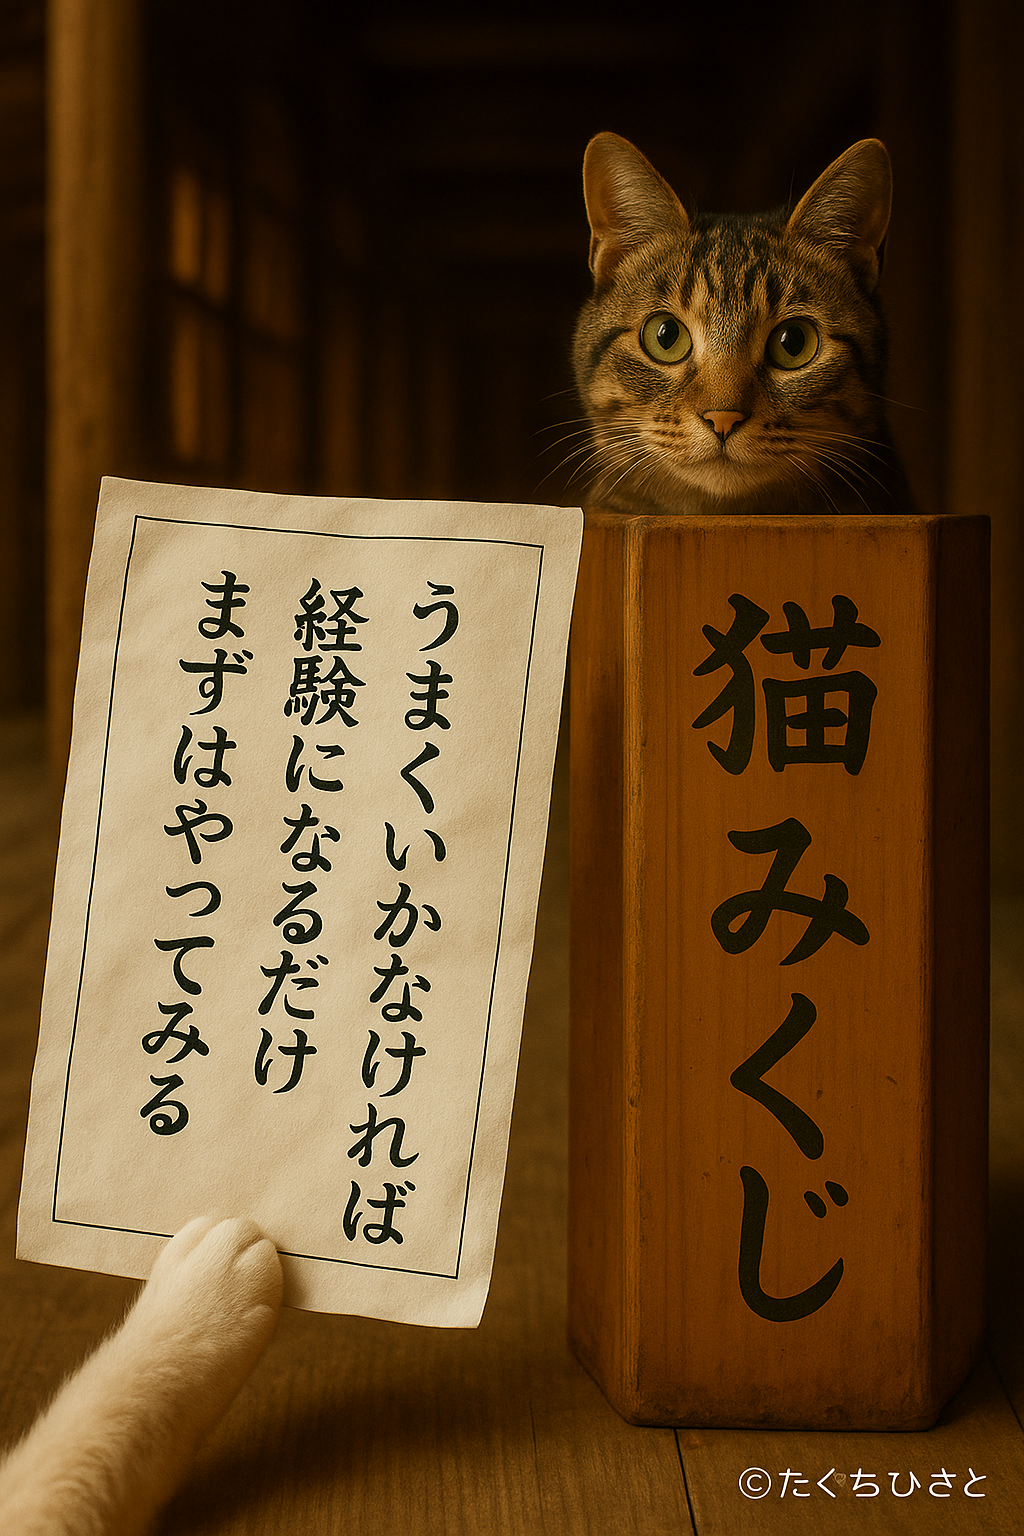 うまくいかなければ
経験になるだけ
まずはやってみる
猫みくじ
©たくちひさと